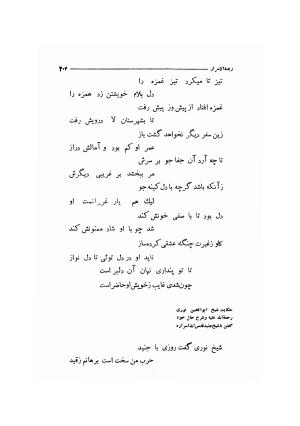 زبدةالاسرار ۴۰۴
تیز تا میکرد تیز غمزه را
دل بلام خویشتن زد همزه را
غمزه افتاد از پیش وز پیش رفت
تا بشهرستان لا درویش رفت
زین سفر دیگر نخواهد گشت باز
عمر او کم بود و آمالش دراز
تا چه آرد آن جفا جو بر سرش
مر ببخشد بر غریبی دیگرش
زآنکه باشد گرچه با دل کینه جو
لیك هم یار غریبانست او
دل بود تا با سفی خوش کند
شد چو با او شاد ممنونش کند
کاو زغیرت چنگه عشقی کرده ساز
ناید او در دل توئی تا دل نواز
تا تو پنداری نهان آن دلبر است
چون شدی غایب زخویش او حاضر است
حکایت شیخ ابوالحسن نوری
رحمةالله علیه وشرح حال خود
گفتن باشیخ جنید قدس الله اسراره
شیخ نوری گفت روزی با جنید
حرب من سخت است برهانم زقید